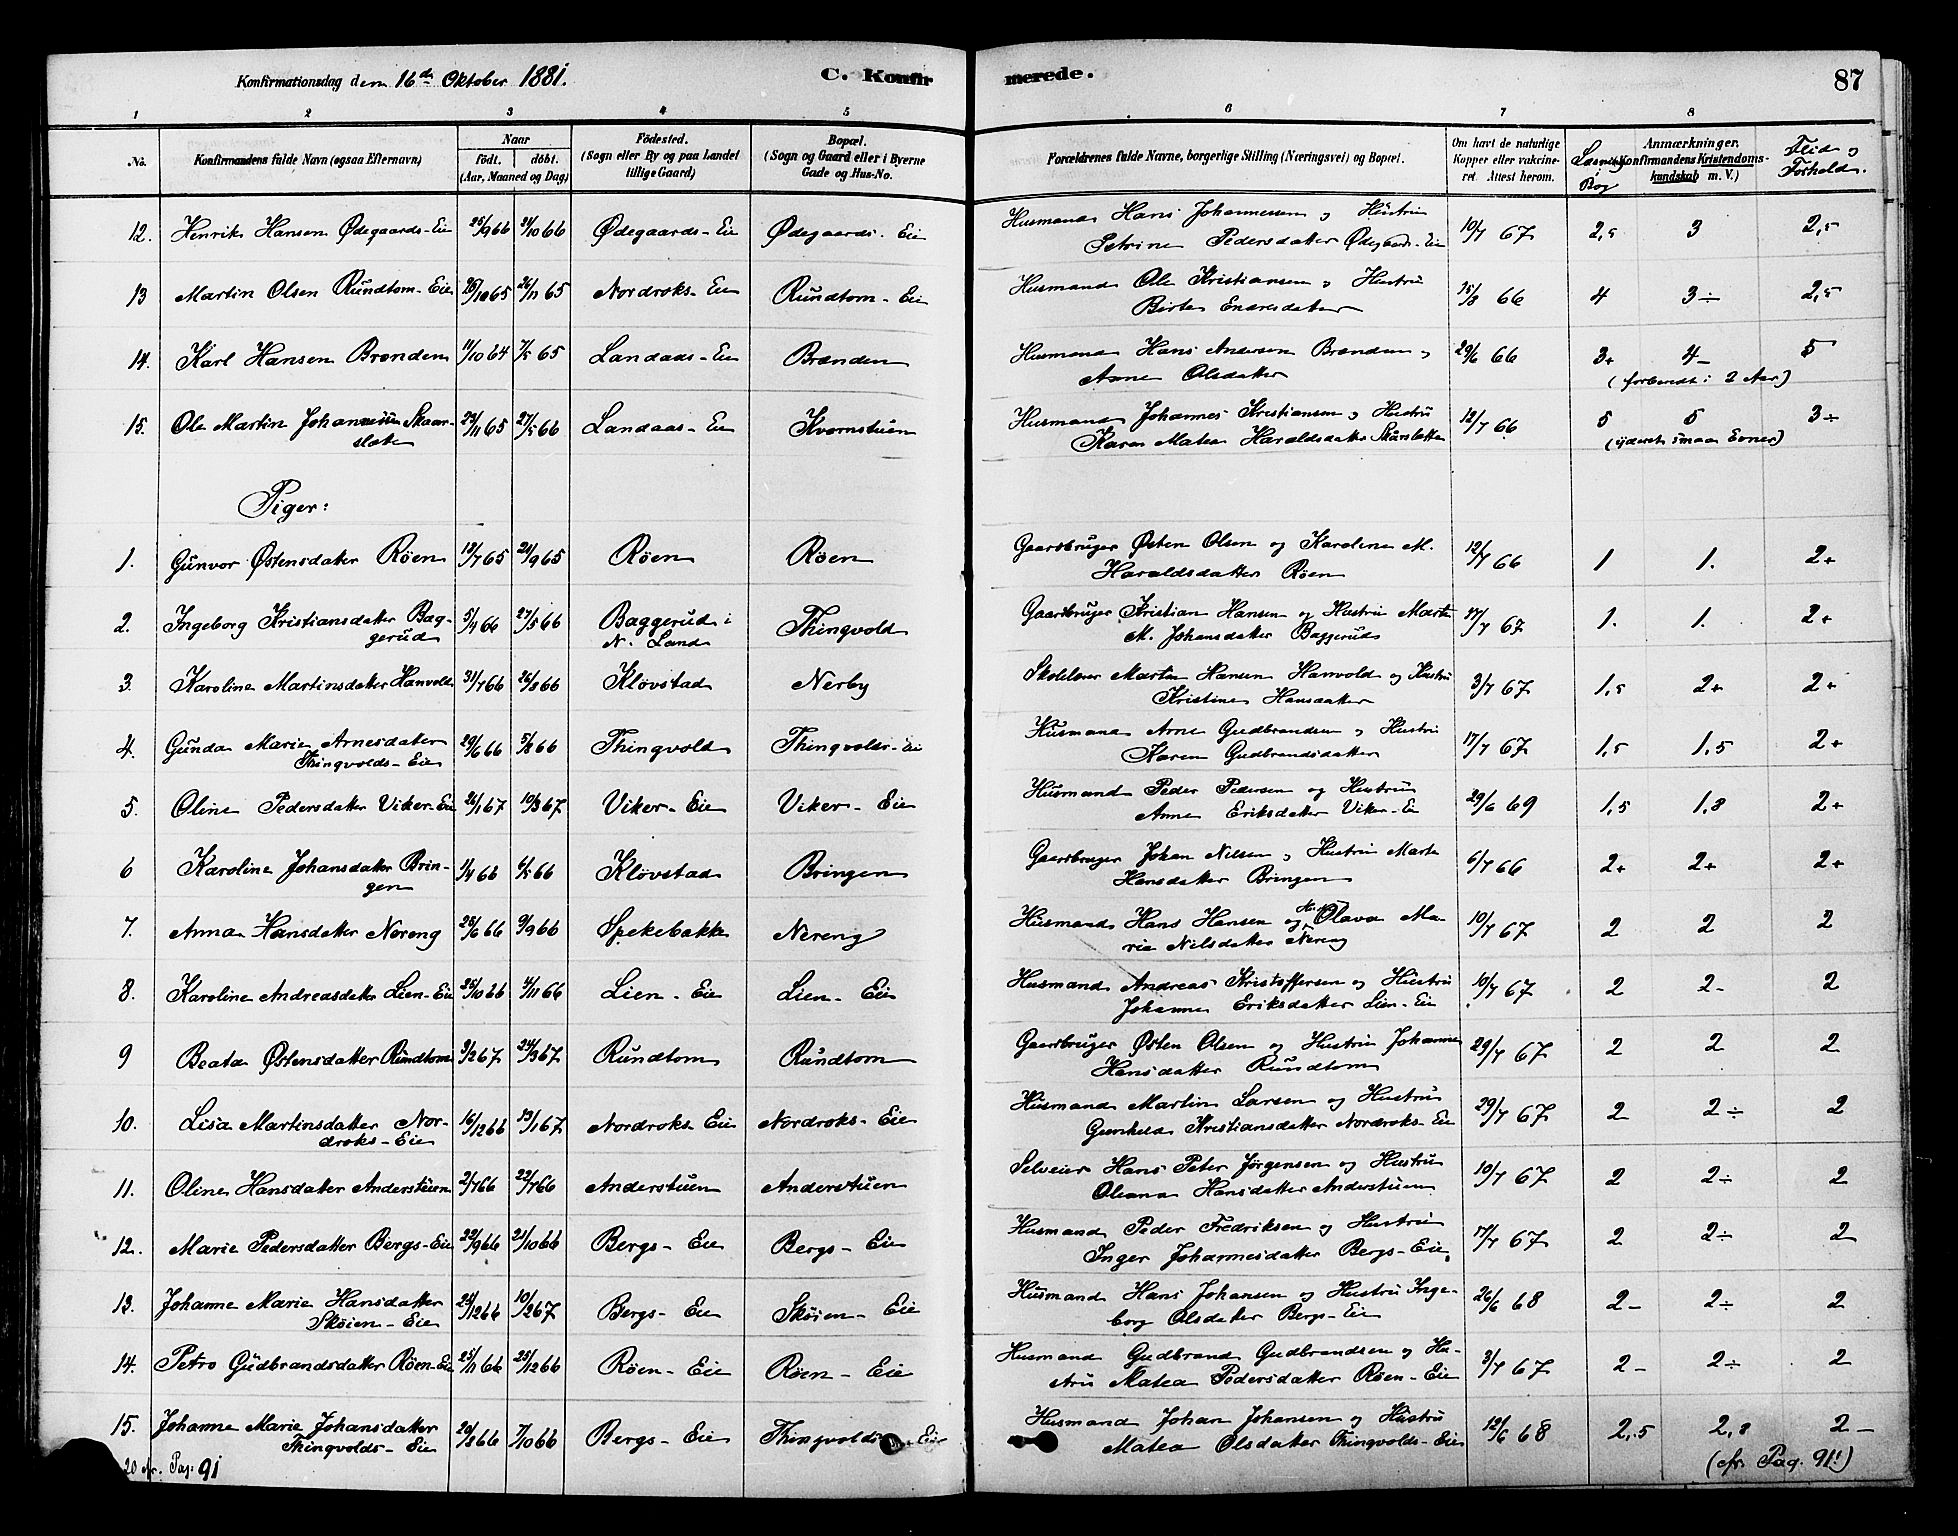 Konfirmationsdag den 16de Oktober 1881.
C. Konfir
merede.
87
1 2 3 4 5 6 7 8
No.
Konfirmandens fulde Navn (ogsaa Efternavn)
Naar
födt. döbt.
(Aar, Maaned og Dag)
Födested.
(Sogn eller By og paa Landet
tillige Gaard)
Bopæl.
(Sogn og Gaard eller i Byerne
Gade og Hus-No.
Forældrenes fulde Navne, borgerlige Stilling (Næringsvei) og Bopæl.
Om havt de naturlige
Kopper eller vakcine-
ret. Attest herom.
Anmærkninger.
Konfirmandens Kristendoms-
kundskab m. V.)
i Bog
Flid og
Forhold.
12. Henrik Hansen Ødegaards-Eie 25/9 66 21/10 66 Ødegaards-Eie Ødegaards-Eie Husmand Hans Johannessen og Hustru 10/7 67 2,5 3 2,5
Petrine Pedersdatter Ødegaards-Eie
13 Martin Olsen Rundtom-Eie 25/10 65 26/11 65 Nordroks-Eie Rundtom-Eie Husmand Ole Kristiansen og Hustru 15/8 66 4 3÷ 2,5
Birte Endresdatter
14. Karl Hansen Brænden 11/10 64 7/5 65 Landaas-Eie Brænden Husmand Hans Andersen Brænden og 29/6 66 3+ 4- 5
Anne Olsdatter (forbendt i 2 Aar)
15. Ole Martin Johannessen Skaar- 29/11 65 27/5 66 Landaas-Eie Kvernstuen Husmand Johannes Kristiansen og Hustru 12/7 66 5 5 3÷
sletten Karen Matea Haraldsdatter Skårsletten (yderst smaa Evner)
Piger:
1. Gunvor Østensdatter Röen 13/7 65 21/9 65 Röen Röen Gaardbruger Østen Olsen og Karoline M. 12/7 66 1 1. 2+
Haraldsdatter Röen
2. Ingeborg Kristiansdatter Bag- 5/4 66 27/5 66 Baggerud i Thingvold Gaardbruger Kristian Hansen og Hustru Marte 17/7 67 1. 1. 2+
gerud N. Land M. Johansdatter Baggerud
3. Karoline Martinsdatter Hanvold 31/7 66 26/8 66 Klövstad Nerby Skolelærer Martin Hansen Hanvold og Hustru 3/7 67 1,5 2+ 2+
Kristine Hansdatter
4. Gunda Marie Arnesdatter 29/6 66 5/8 66 Thingvold Thingvolds-Eie Husmand Arne Gudbrandsen og Hustru 17/7 67 1,5 1,5 2+
Thingvolds-Eie Karen Gudbrandsdatter
5. Oline Pedersdatter Viker-Eie 26/1 67 10/3 67 Viker-Eie Viker-Eie Husmand Peder Pedersen og Hustru 29/6 69 1,5 1,8 2+
Anne Eriksdatter Viker-Eie
6 Karoline Johansdatter Brin- 1/4 66 6/5 66 Klövstad Bringen Gaardbruger Johan Nilsen og Hustru Marte 6/7 66 2+ 2+ 2+
gen Hansdatter Bringen
7. Anna Hansdatter Nereng 25/6 66 9/9 66 Spekebakke Nereng Husmand Hans Hansen og Hustru Olava Ma- 10/7 67 2 2 2
rie Nilsdatter Nereng
8. Karoline Andreasdatter Lien-Eie 25/10 66 4/11 66 Lien-Eie Lien-Eie Husmand Andreas Kristoffersen og Hustru 10/7 67 2 2- 2
Johanne Eriksdatter Lien-Eie
9 Beata Østensdatter Rundtom 3/2 67 24/3 67 Rundtom Rundtom Gaardbruger Østen Olsen og Hustru Johanne 29/7 67 2 2 2
Hansdatter Rundtom
10. Lisa Martinsdatter Nor- 16/12 66 13/1 67 Nordroks Eie Nordroks-Eie Husmand Martin Larsen og Hustru 29/7 67 2 2÷ 2
droks-Eie Gunhild Kristiansdatter Nordroks-Eie
11. Oline Hansdatter Anderstuen 2/7 66 22/7 66 Anderstuen Anderstuen Selveier Hans Peter Jörgensen og Hustru 10/7 67 2 2÷ 2
Oleana Hansdatter Anderstuen
12. Marie Pedersdatter Bergs-Eie 22/9 66 21/10 66 Bergs-Eie Bergs-Eie Husmand Peder Fredriksen og Hustru 17/7 67 2 2÷ 2
Inger Johannesdatter Bergs-Eie
13. Johanne Marie Hansdatter 24/12 66 10/2 67 Bergs-Eie Sköien-Eie Husmand Hans Johansen og Hustru Inge- 26/6 68 2- 2÷ 2
Sköien-Eie borg Olsdatter Bergs-Eie
14. Petro Gudbrandsdatter Röen-Eie 25/11 66 25/12 66 Röen-Eie Röen-Eie Husmand Gudbrand Gudbrandsen og Hu- 3/7 67 2- 2÷ 2
stru Matea Pedersdatter Röen-Eie
15. Johanne Marie Johansdatter 20/8 66 7/10 66 Bergs-Eie Thingvolds-Eie Husmand Johan Johansen og Hustru 12/6 68 2,5 2,8 2-
Thingvolds-Eie Matea Olsdatter Thingvolds-Eie
20 cfr. Pag. 91 (cfr. Pag. 91!)